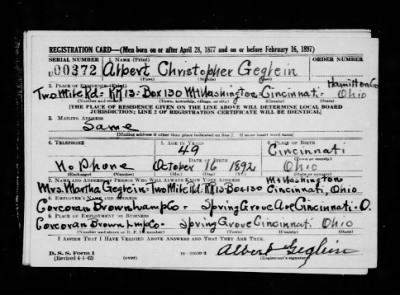 REGISTRATION CARD—(Men born on or after April 28, 1877 and on or before February 16, 1897)
SERIAL NUMBER 1. NAME (Print) ORDER NUMBER
U 00372 Albert Christopher Geglein
(First) (Middle) (Last)
2. PLACE OF RESIDENCE (Print) Hamilton Co
Two Mile Rd. RR 13-Box 130 Mt Washington-Cincinnati- Ohio
(Number and street) (Town, township, village, or city) (County) (State)
[THE PLACE OF RESIDENCE GIVEN ON THE LINE ABOVE WILL DETERMINE LOCAL BOARD
JURISDICTION; LINE 2 OF REGISTRATION CERTIFICATE WILL BE IDENTICAL]
3. MAILING ADDRESS
Same
[Mailing address if other than place indicated on line 2. If same insert word same]
4. TELEPHONE 5. AGE IN YEARS 6. PLACE OF BIRTH
49 Cincinnati
DATE OF BIRTH
No Phone October 16 1892 Ohio
(Exchange) (Number) (Mo.) (Day) (Yr.) (State or country)
7. NAME AND ADDRESS OF PERSON WHO WILL ALWAYS KNOW YOUR ADDRESS Mt Washington
Mrs. Martha Geglein-Two Mile Rd. RR 13 Box 130 Cincinnati, Ohio
8. EMPLOYER'S NAME AND ADDRESS
Corcoran Brown Lamp Co- Spring Grove Ave Cincinnati-O.
9. PLACE OF EMPLOYMENT OR BUSINESS
Corcoran Brown Lmp Co- Spring Grove Cincinnati Ohio
(Number and street or R. F. D. number) (Town) (County) (State)
I AFFIRM THAT I HAVE VERIFIED ABOVE ANSWERS AND THAT THEY ARE TRUE.
D. S. S. Form 1
(Revised 4-1-42) (over) Albert Geglein
(Registrant's signature)